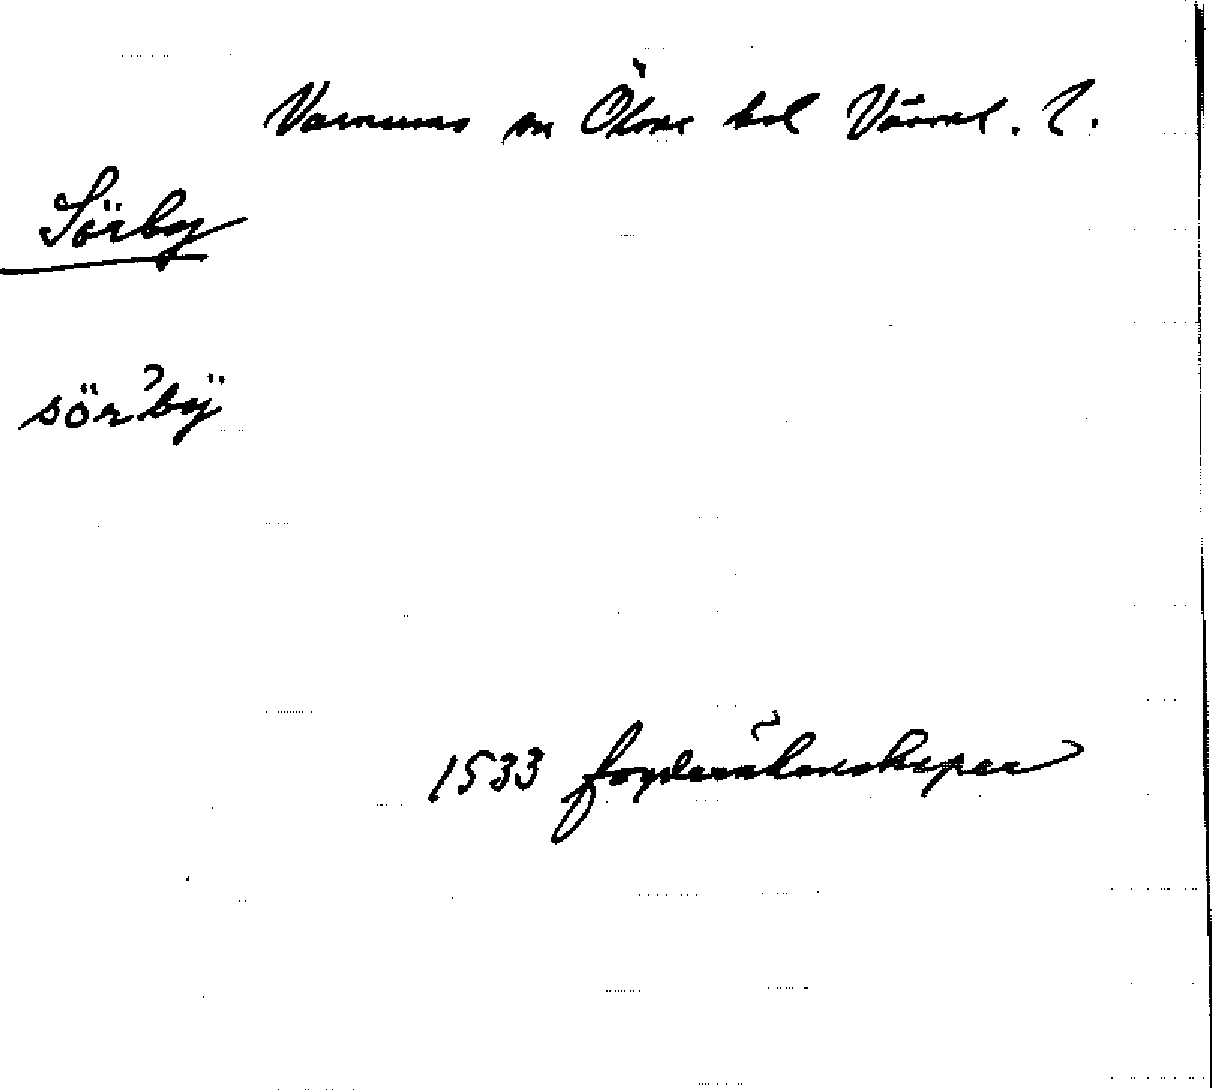 Varnums sn Ölme hd Värml. l.
Sörby
sör²bÿ
1533 fogderäkenskaper